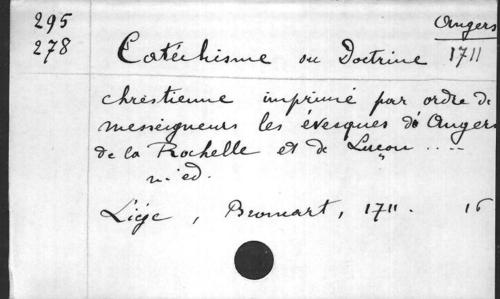 295
278
Angers
1711
Catéchisme ou Doctrine
chrestienne imprimé par ordre de
messeigneurs les évesques d'Angers
de la Rochelle et de Luçon ....
n. éd.
Liége, Bromart, 1711. 16